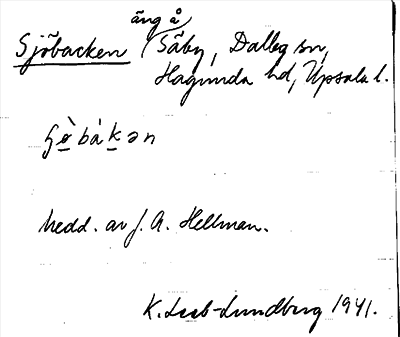 äng å
Sjöbacken (Säby, Dalby sn,
Hagunda hd, Upsala l.
bákən
Medd. av J. A. Hellman.
K. Leeb-Lundberg 1941.